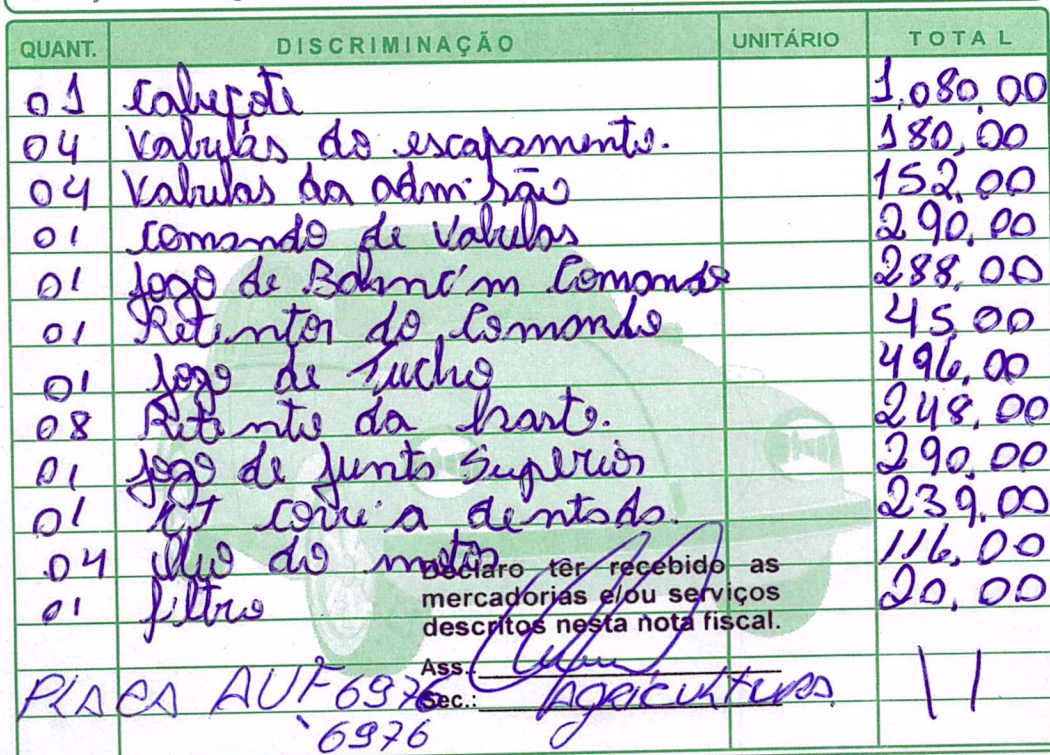 QUANT. DISCRIMINAÇÃO UNITÁRIO TOTAL
01 Cabeçote 1.080,00
04 Valvulas do escapamento. 180,00
04 Valvulas da admissão 152,00
01 Comando de Valvulas 290,00
01 Jogo de Balancim Comando 288,00
01 Retentor do Comando 45,00
01 Jogo de Tucho 496,00
08 Retento da haste. 248,00
01 Jogo de Junta Superior 290,00
01 KT correia dentada. 239,00
04 óleo do motor 116,00
01 filtro 20,00
Declaro têr recebido as
mercadorias e/ou serviços
descritos nesta nota fiscal.
Ass.:
PLACA AUF 6976 Sec.: Agricultura
6976